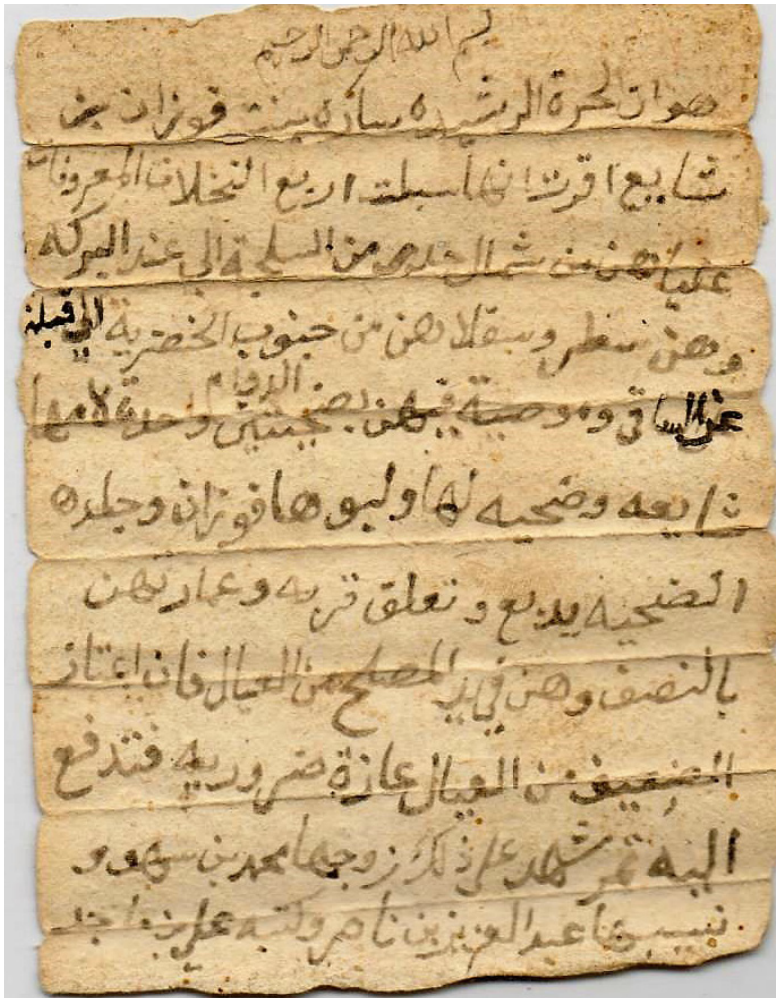 بسم الله الرحمن الرحيم
هو ان الحرة الرشيده ساره بنت فوزان بن
شايع اقرت انها سبلت اربع النخلات المعروفات
علياتهن من شمال من السلجة الي عند البركه
وهن سطر وسفلاهن من جنوب الخضرية الي قبلة
عن الساقي وه وصية فيهن بضحيتين الدوام وحدة لامها
شايعه وضحيه لها ولبوها فوزان وجلده
الضحية يدبع وتعلق قربه وعمارتهن
بالنصف وهن في يد المصلح من العيال فان اعتاز
الضعيف من العيال عازة ضروريه فتدفع
اليه ثم شهد على ذلك زوجها محمد بن سهو و
نسيبها عبد العزيز بن ناصر وكتبه علي بن